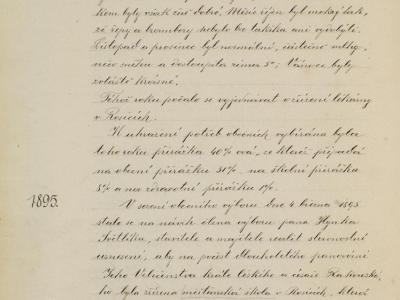 kem byly však zas dobré. Měsíc říjen byl mokrý tak,
že řepy a brambory nebylo lze takřka ani vydobýti.
Listopad a prosinec byl normální, částečně mlhy,
něco sněhu a dostoupila zima 5°; Vánoce byly
zvláště krásné.
Téhož roku počalo se vyjednávat o zřízení lékárny
v Rosicích.
K uhrazení potřeb obecních vybírána byla
toho roku přirážka 40% ová, ze kteréž připadá
na obecní přirážku 31%, na školní přirážku
8% a na zdravotní přirážku 1%.
1895.
V sezení obecního výboru dne 4. března 1895
stalo se na návrh člena výboru pana Hynka
Světlíka, stavitele a majetele realit slavnostní
usnesení, aby na počest dlouholetého panování
Jeho Veličenstva krále českého a císaře Rakouské-
ho byla zřízena měšťanská škola v Rosicích, kteráž